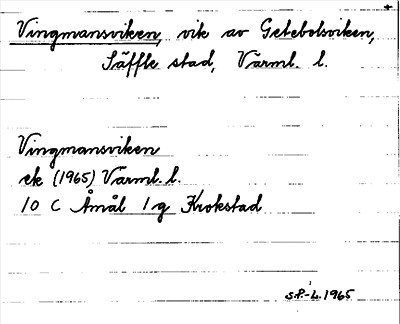 Vingmansviken, vik av Getebolsviken,
Säffle stad, Värml. l.
Vingmansviken
ek (1965) Värml. l.
10 C Åmål 1g Krokstad
S.P.-L. 1965